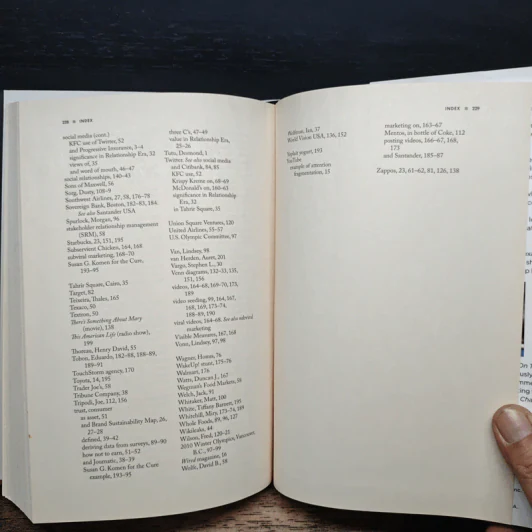 228 INDEX
social media (cont.)
KFC use of Twitter, 52
and Progressive Insurance, 3–4
significance in Relationship Era, 32
views of, 35
and word of mouth, 46–47
social relationships, 140–43
Sons of Maxwell, 56
Soig, Dusty, 108–9
Southwest Airlines, 27, 58, 176–78
Sovereign Bank, Boston, 182–83, 184.
See also Santander USA
Spurlock, Morgan, 96
stakeholder relationship management
(SRM), 58
Starbucks, 23, 151, 195
Subservient Chicken, 164, 168
subviral marketing, 168–70
Susan G. Komen for the Cure,
193–95
Tahrir Square, Cairo, 35
Target, 82
Teixeira, Thales, 165
Texaco, 50
Textron, 50
There's Something About Mary
(movie), 138
This American Life (radio show),
199
Thomas, Henry David, 55
Tobon, Eduardo, 182–88, 188–89,
189–91
TouchStorm agency, 170
Toyota, 14, 195
Trader Joe's, 58
Tribune Company, 38
Tripodi, Joe, 112, 156
trust, consumer
as asset, 51
and Brand Sustainability Map, 26,
27–28
defined, 39–42
deriving data from surveys, 89–90
how not to earn, 51–52
and Journatic, 38–39
Susan G. Komen for the Cure
example, 193–95
three C's, 47–49
value in Relationship Era,
25–26
Tutu, Desmond, 1
Twitter. See also social media
and Citibank, 84, 85
KFC use, 52
Krispy Kreme on, 68–69
McDonald's on, 160–61
significance in Relationship
Era, 32
in Tahrir Square, 35
Union Square Ventures, 120
United Airlines, 55–57
U.S. Olympic Committee, 97
Van, Lindsey, 98
van Heerden, Auret, 201
Vargo, Stephen L., 30
Venn diagrams, 132–33, 135,
151, 156
videos, 164–68, 169–70, 173,
189
video seeding, 89, 164, 167,
168, 169, 173–74,
188–89, 190
viral videos, 164–68. See also subviral
marketing
Visible Measures, 167, 168
Vonn, Lindsey, 97, 98
Wagner, Honus, 76
WakeUp! trust, 175–76
Walmart, 176
Watts, Duncan J., 167
Wegman's Food Markets, 58
Welch, Jack, 91
Whitaker, Matt, 100
White, Tiffany Barnett, 195
Whitehill, Mity, 173–74, 189
Whole Foods, 89, 96, 127
Wikileaks, 44
Wilson, Fred, 120–21
2010 Winter Olympics, Vancouver,
B.C., 97–99
Wired magazine, 16
Wolfe, David B., 58
INDEX 229
Inc, 37
World Vision USA, 136, 152
191, 153
YouTube
example of attention
fragmentation, 15
marketing on, 163–67
Mentos, in bottle of Coke, 112
posting videos, 166–67, 168,
173
and Santander, 185–87
Zappos, 23, 61–62, 81, 126, 138